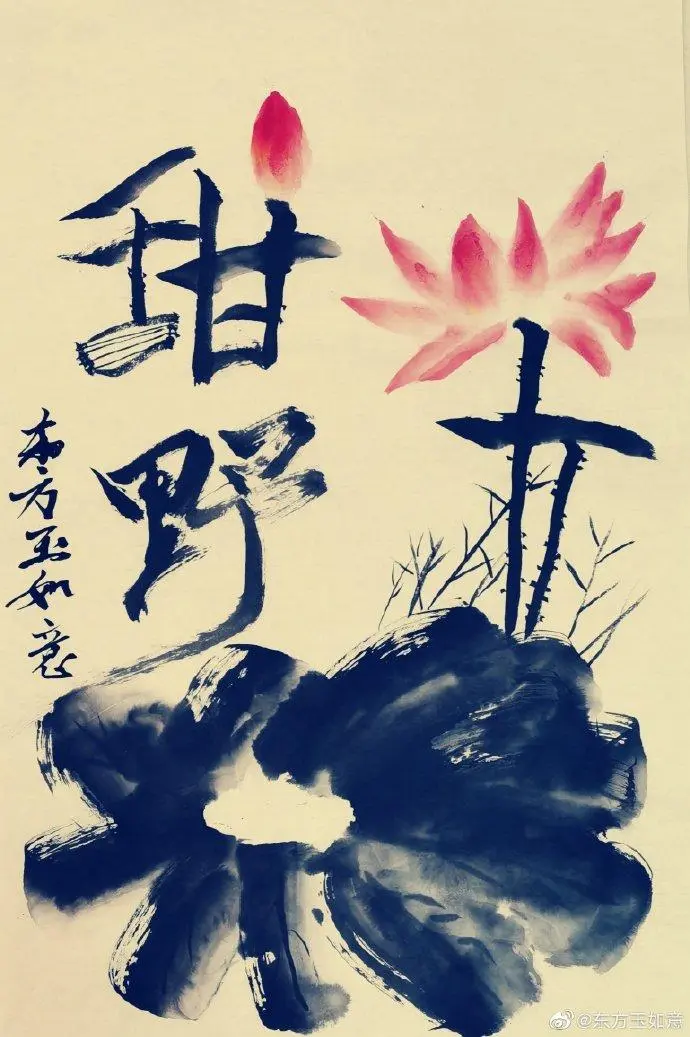 甜
野
东方玉如意
@东方玉如意